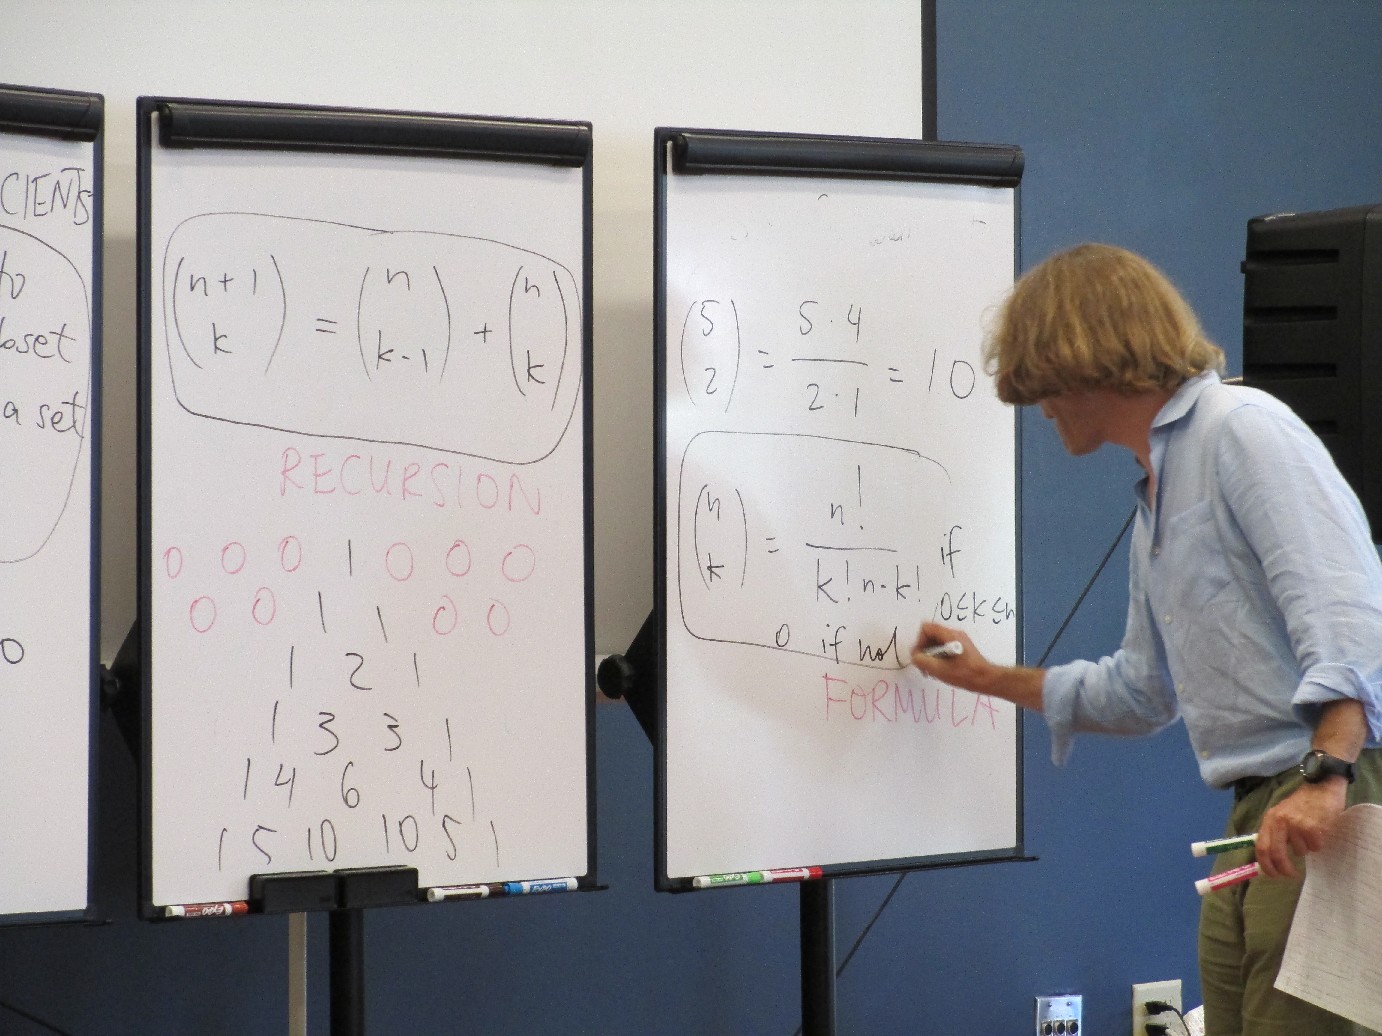 CIENTS
to
a set
0
(n+1 k) = (n k-1) + (n k)
RECURSION
0 0 0 1 0 0 0
0 0 1 1 0 0
1 2 1
1 3 3 1
1 4 6 4 1
1 5 10 10 5 1
EXPO
(5 2) = 5·4 / 2·1 = 10
(n k) = n! / k! n-k! if
0≤k≤n
0 if not
FORMULA